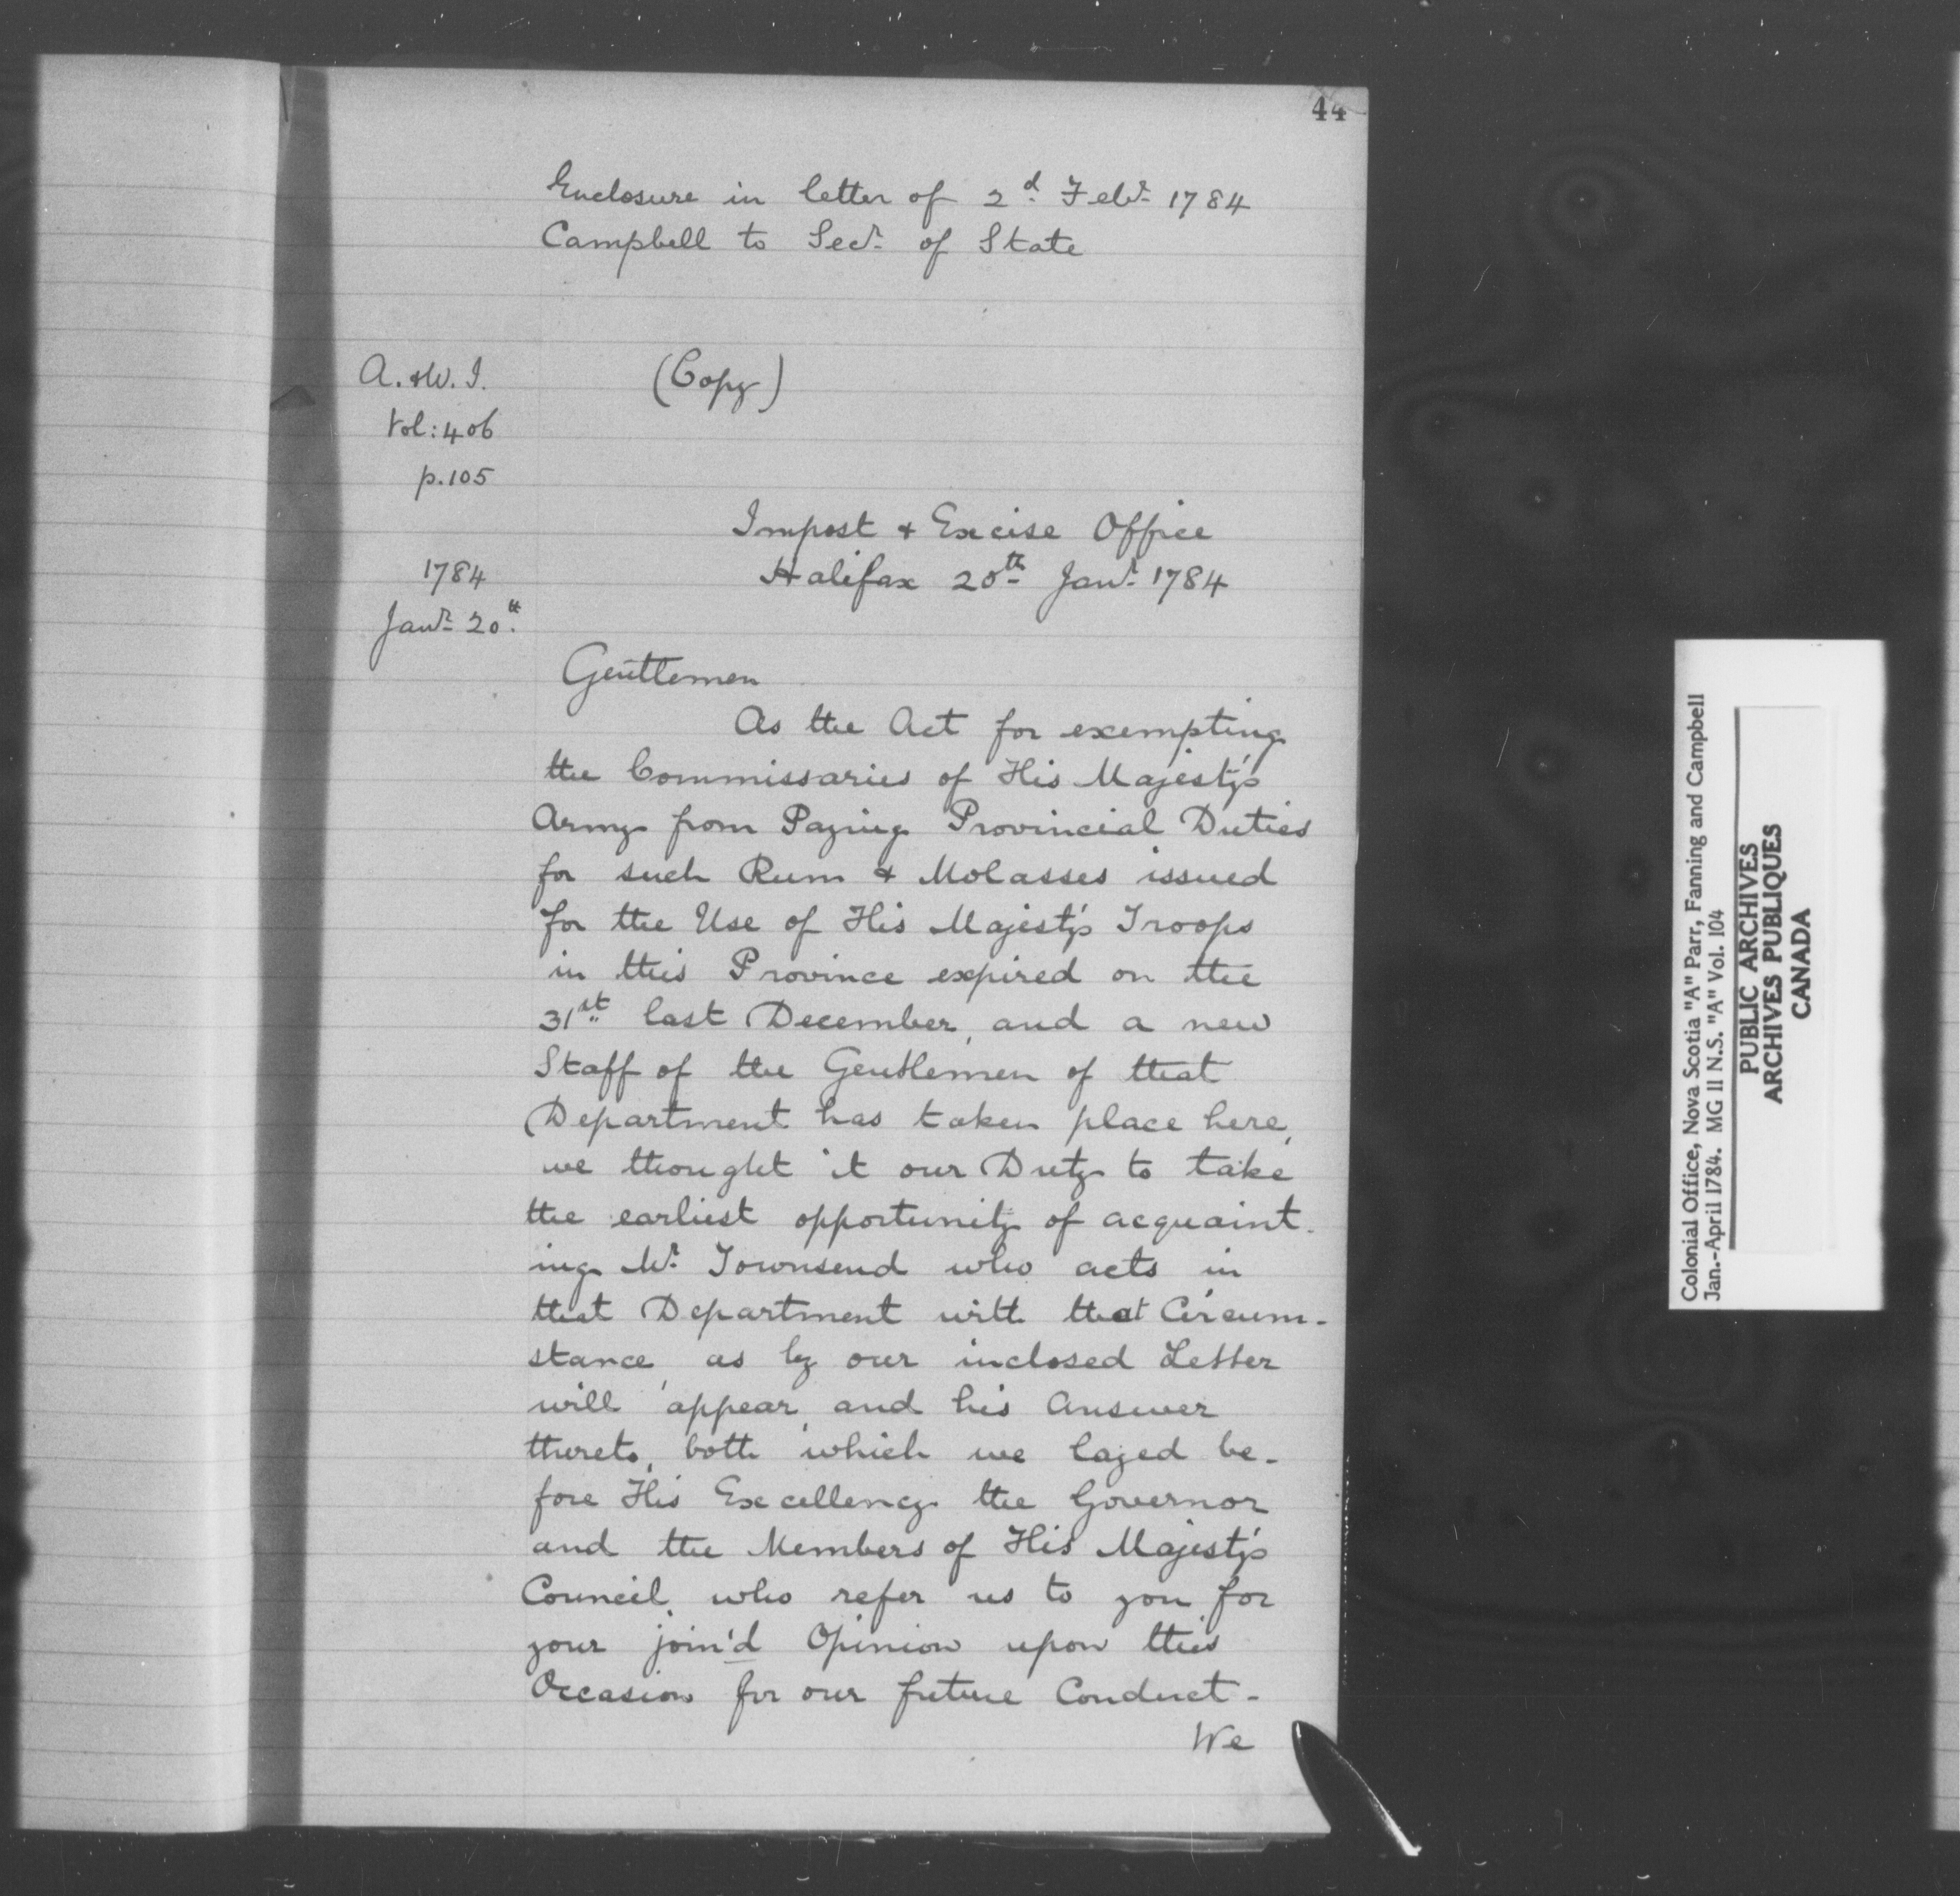 44
Enclosure in letter of 2d. Feby. 1784
Campbell to Secy. of State
A. & W. I.
Vol: 406
p. 105
(Copy)
Impost & Excise Office
Halifax 20th Jany. 1784
1784
Jany. 20th.
Gentlemen
As the Act for exempting
the Commissaries of His Majesty's
Army from Paying Provincial Duties
for such Rum & Molasses issued
for the Use of His Majesty's Troops
in this Province expired on the
31st last December, and a new
Staff of the Gentlemen of that
Department has taken place here,
we thought it our Duty to take
the earliest opportunity of acquaint-
ing Mr. Townsend who acts in
that Department with that Circum-
stance, as by our inclosed Letter
will appear, and his Answer
thereto, both which we layed be-
fore His Excellency the Governor
and the Members of His Majesty's
Council, who refer us to you for
your join'd Opinion upon this
Occasion for our future Conduct -
We
Colonial Office, Nova Scotia "A" Parr, Fanning and Campbell
Jan.-April 1784. MG 11 N.S. "A" Vol. 104
PUBLIC ARCHIVES
ARCHIVES PUBLIQUES
CANADA